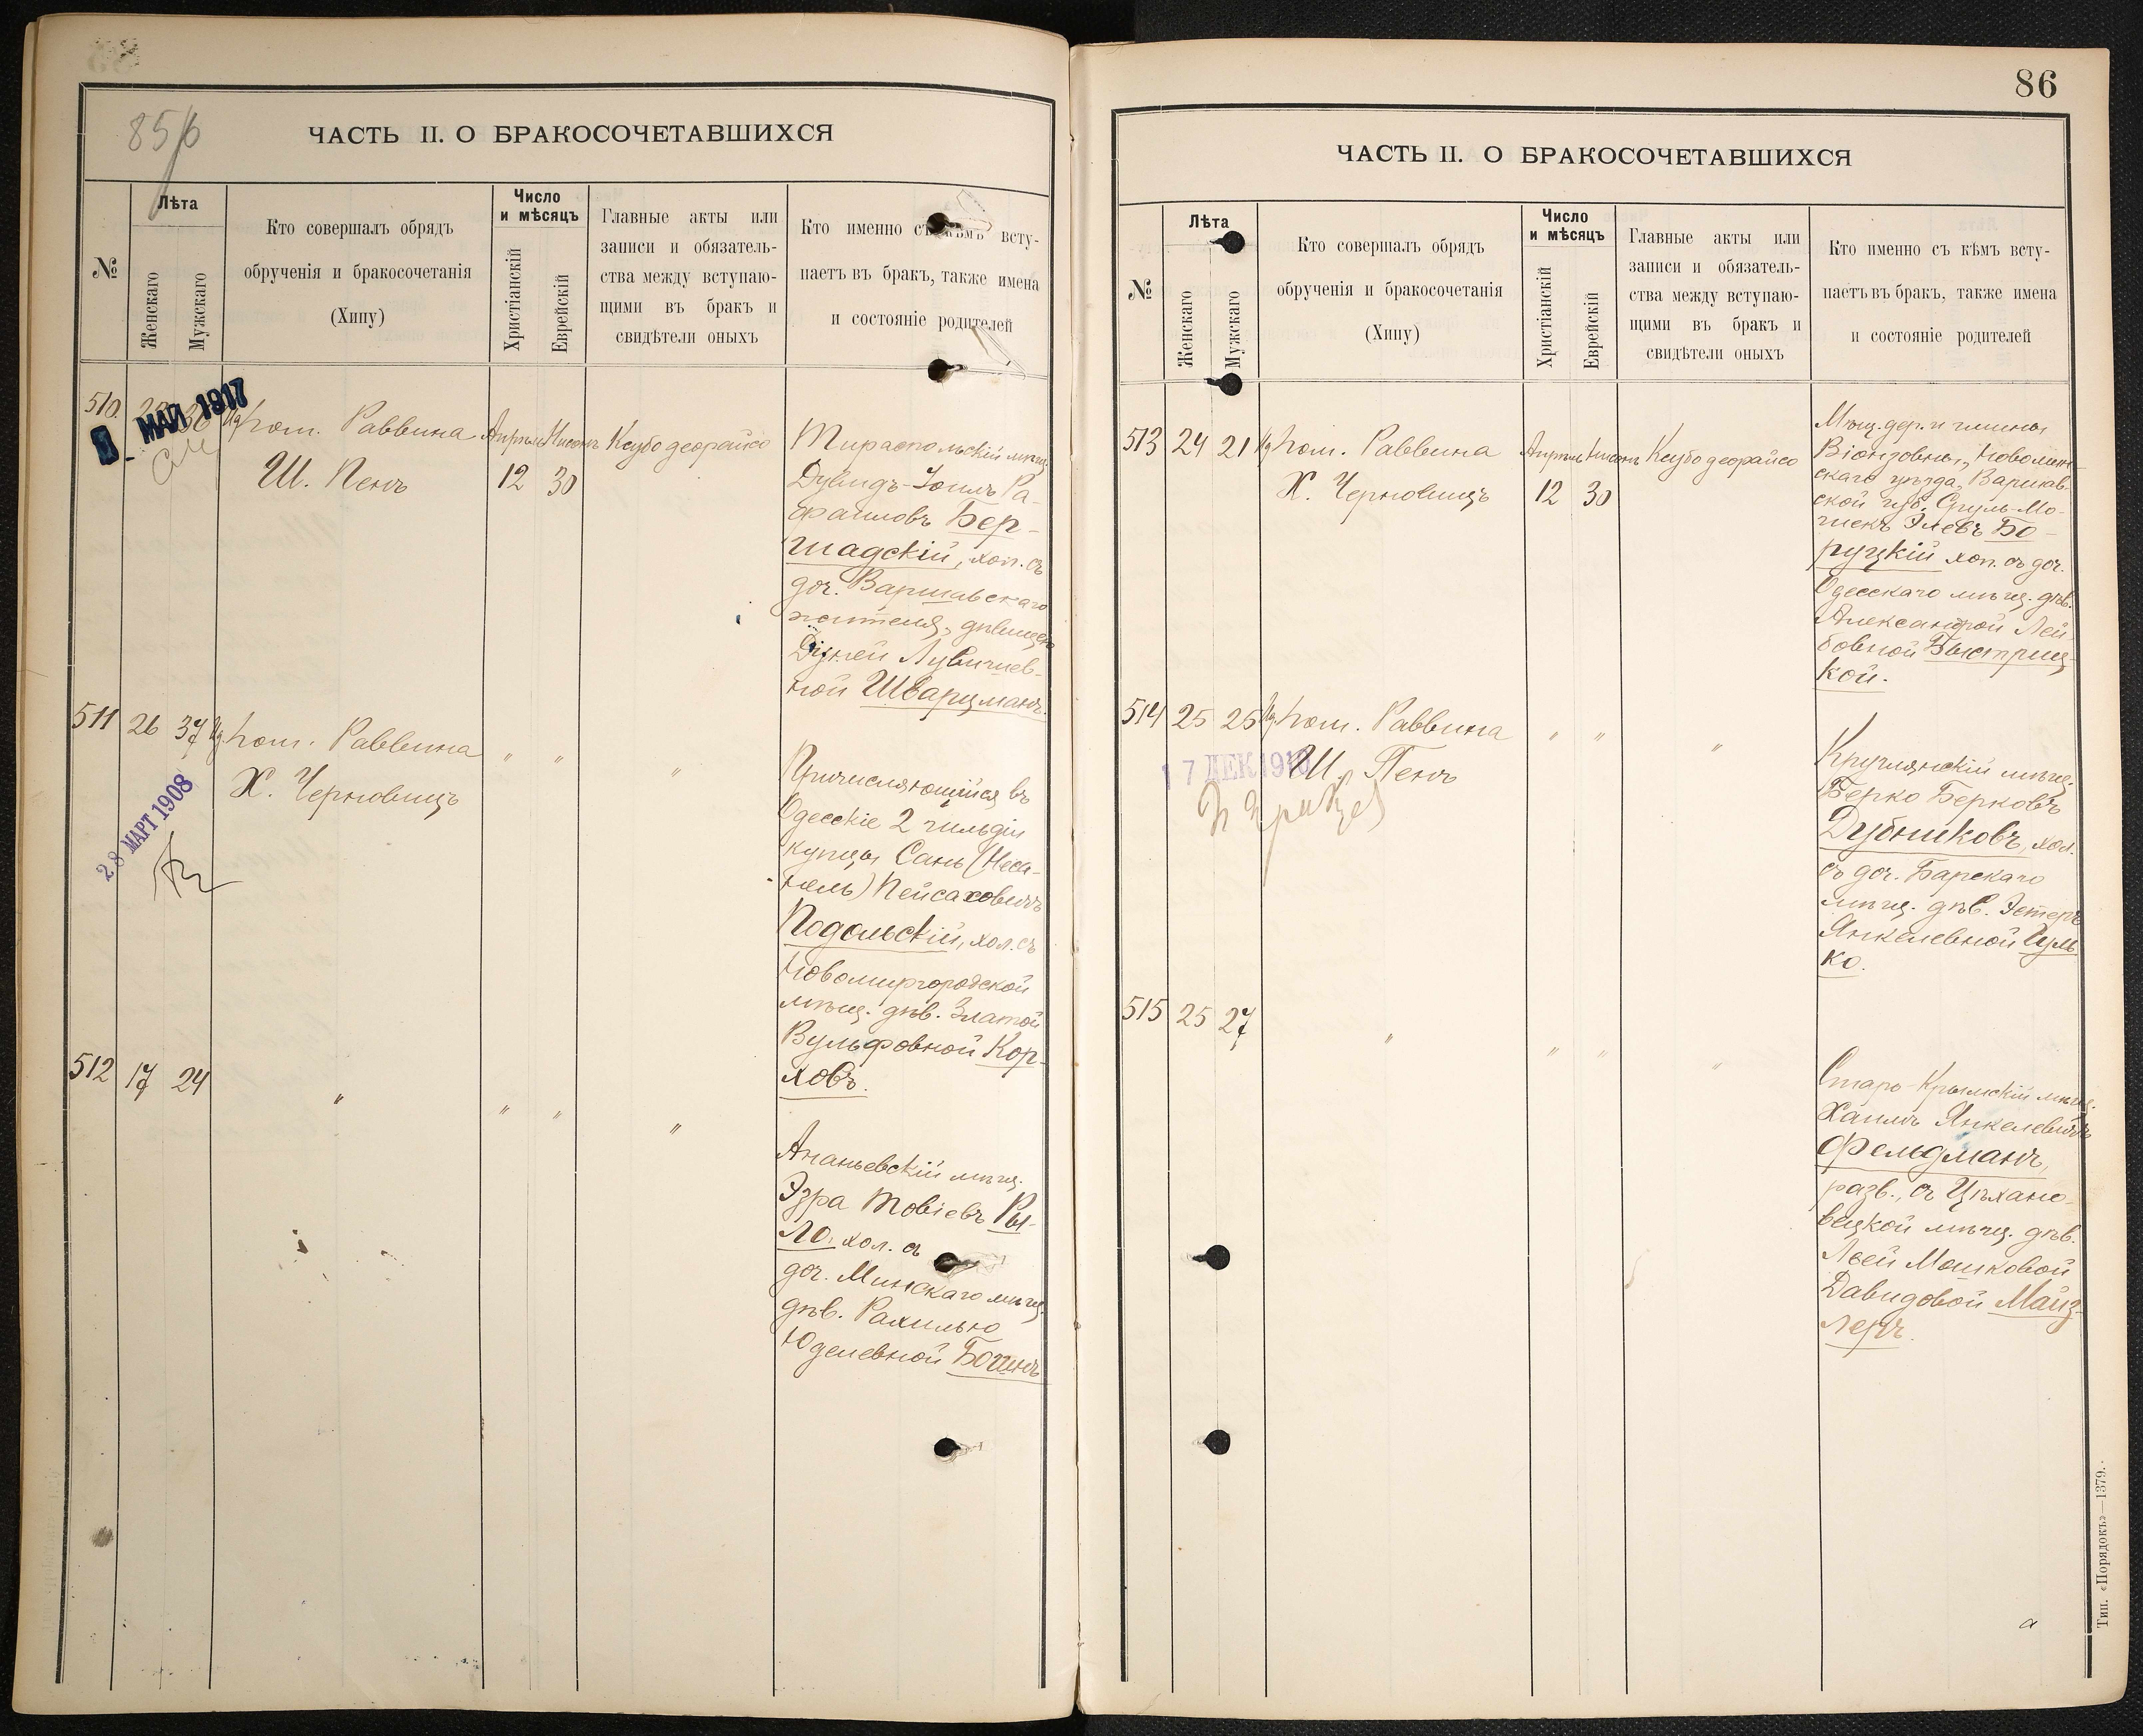 85/б
ЧАСТЬ II. О БРАКОСОЧЕТАВШИХСЯ
№
Лѣта
Женскаго
Мужскаго
Кто совершалъ обрядъ
обрученія и бракосочетанія
(Хипу)
Число
и мѣсяцъ
Христіанскій
Еврейскій
Главные акты или
записи и обязатель-
ства между вступаю-
щими въ бракъ и
свидѣтели оныхъ
Кто именно съ кѣмъ всту-
паетъ въ бракъ, также имена
и состояніе родителей
510.
МАЙ 1917
30
пом. Раввина
Ш. Пенъ
Апрѣль Нисонъ
12 30
Ксубо деорайсо
Тираспольскій мѣщ.
Дувидъ-Іоилъ Ра-
фаиловъ Бер-
шадскій, хол. съ
доч. Варшавскаго
жителя, дѣвицею
Лувишев-
ной Шварцманъ.
511 26 37
пом. Раввина
Х. Черновицъ
" "
"
28 МАРТ 1908
Причисляющійся въ
Одесскіе 2 гильдіи
купцы Сань (Неса-
нель) Пейсаховичъ
Подольскій, хол. съ
Новомиргородской
мѣщ. дѣв. Златой
Вульфовной Кор-
ховъ.
512 17 24
"
" "
"
Ананьевскій мѣщ.
Эзра Товіевъ Ры-
ло, хол. съ
доч. Минскаго мѣщ.
дѣв. Рахилью
Юделевной Богинъ
86
ЧАСТЬ II. О БРАКОСОЧЕТАВШИХСЯ
№
Лѣта
Женскаго
Мужскаго
Кто совершалъ обрядъ
обрученія и бракосочетанія
(Хипу)
Число
и мѣсяцъ
Христіанскій
Еврейскій
Главные акты или
записи и обязатель-
ства между вступаю-
щими въ бракъ и
свидѣтели оныхъ
Кто именно съ кѣмъ всту-
паетъ въ бракъ, также имена
и состояніе родителей
513 24 21
пом. Раввина
Х. Черновицъ
Апрѣль Нисонъ
12 30
Ксубо деорайсо
Мѣщ. дер. и гмины
Віонзовны, Новомин-
скаго уѣзда, Варшав-
ской губ. Сруль-Мо-
шекъ Элевъ Бо-
руцкій хол. съ доч.
Одесскаго мѣщ. дѣв.
Александрой Лей-
бовной Быстриц-
кой.
514 25 25
пом. Раввина
Ш. Пенъ
" "
"
17 ДЕК 191
Круглянскій мѣщ.
Берко Берковъ
Дубниковъ, хол.
съ доч. Барскаго
мѣщ. дѣв. Эстеръ
Янкелевной Цуль-
ко.
515 25 27
"
" "
"
Старо-Крымскій мѣщ.
Хаимъ Янкелевичъ
Фельдманъ,
разв., съ Цѣхано-
вецкой мѣщ. дѣв.
Леей Мошковой
Давидовой Майз-
леръ.
Тип. «Порядокъ»—1379.